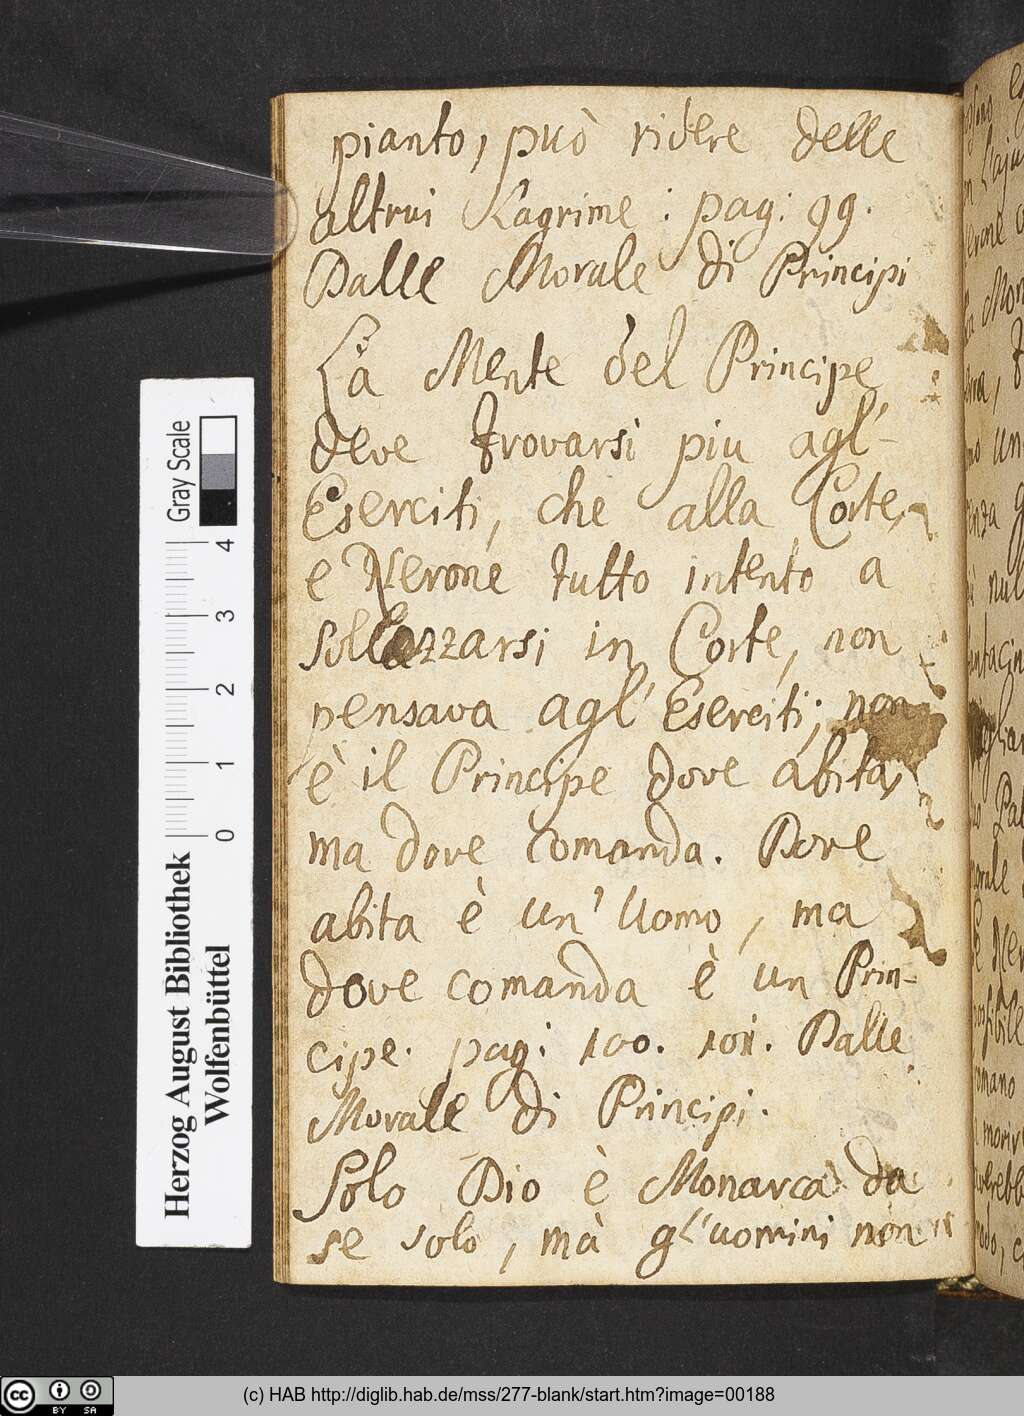 pianto, può ridere delle
altrui Lagrime : pag: 99.
Dalle Morale di Principi
La Mente del Principe
deve trovarsi piu agl'-
Eserciti, che alla Corte,
e Nerone tutto intento a
sollazzarsi in Corte, non
pensava agl' Eserciti; non
è il Principe dove abita,
ma dove comanda. Dove
abita è un' Uomo, ma
dove comanda è un Prin-
cipe. pag: 100. 101. Dalle
Morale di Principi.
Solo Dio è Monarca da
se solo, mà gl'uomini non
Gray Scale
4
3
2
1
0
Herzog August Bibliothek
Wolfenbüttel
cc BY SA
(c) HAB http://diglib.hab.de/mss/277-blank/start.htm?image=00188